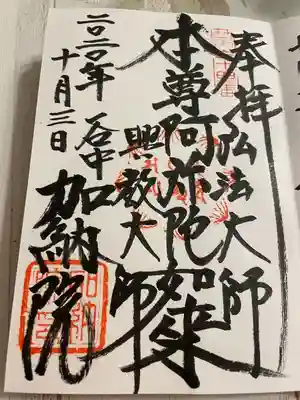 奉拝 弘法大師
本尊阿弥陀如来
興教大師
谷中 加納院
二〇二〇年
十月三日